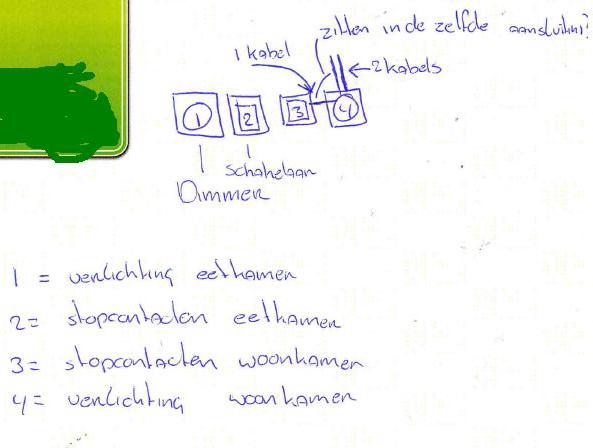 zitten in de zelfde aansluiting?
1 kabel
2 kabels
1 2 3 4
schakelaar
Dimmer
1 = verlichting eetkamer
2= stopcontacten eetkamer
3= stopcontacten woonkamer
4= verlichting woonkamer